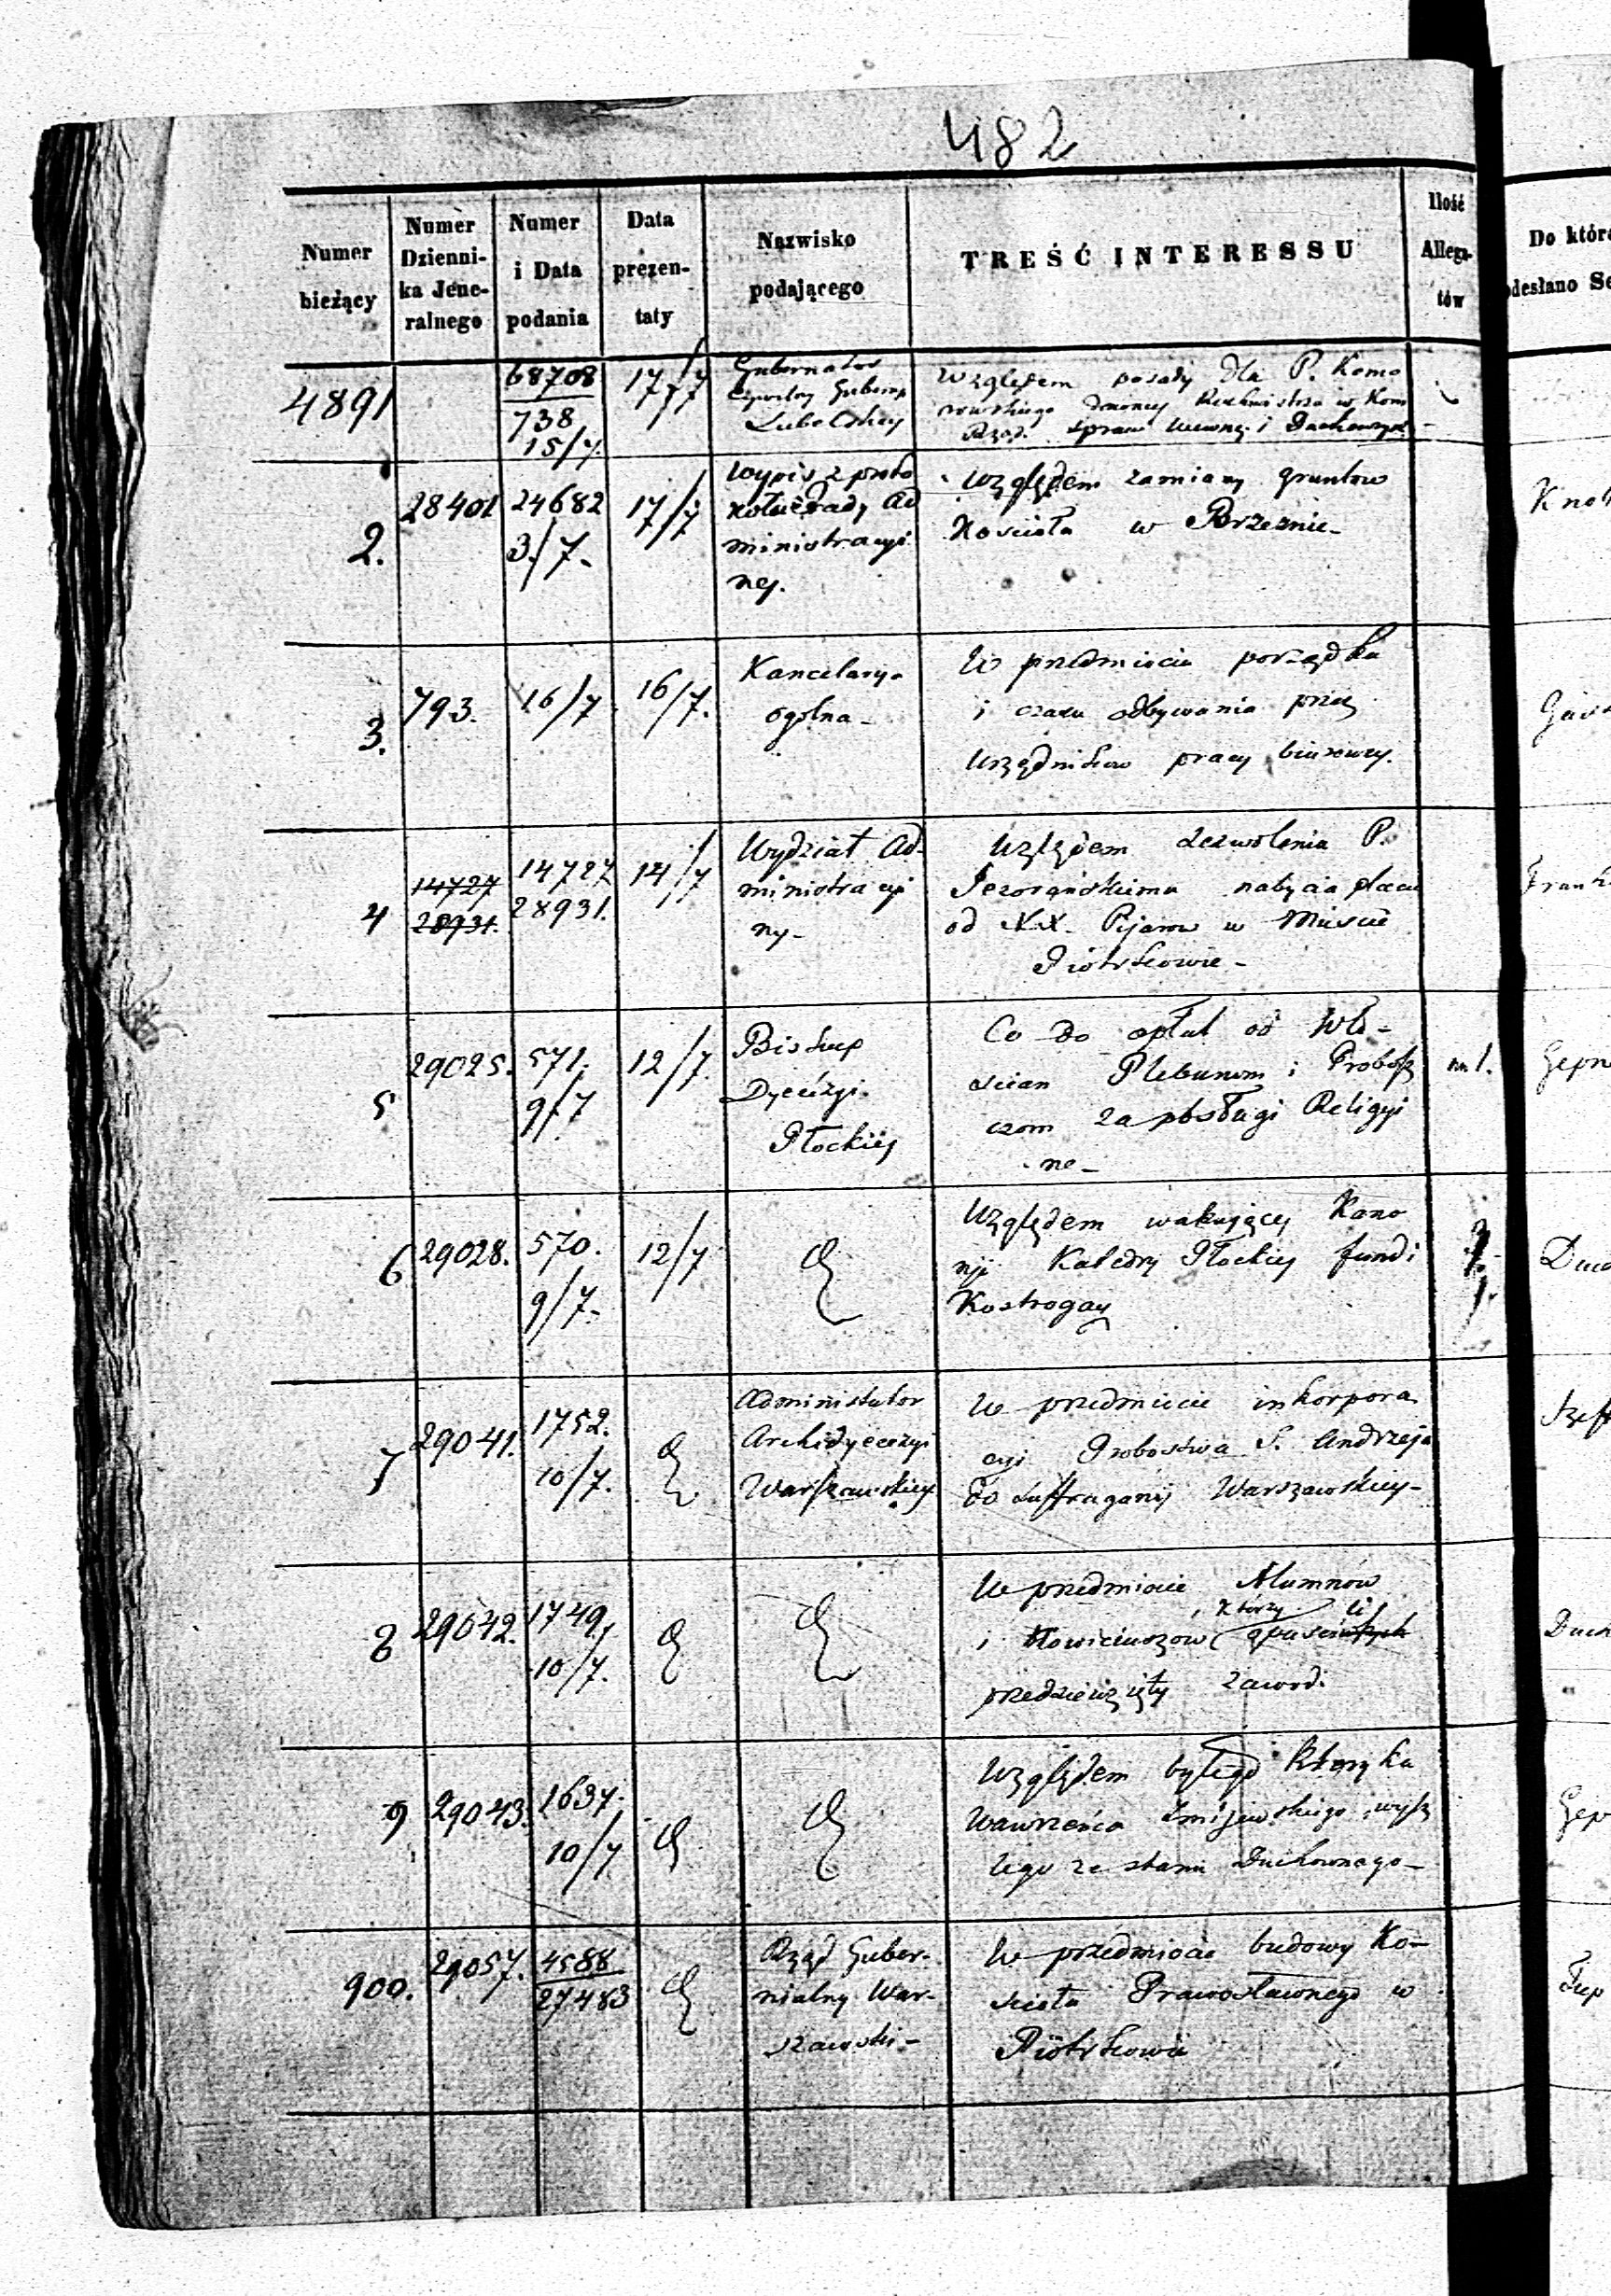 482
Numer
bieżący
Numer
Dzienni-
ka Jene-
ralnego
Numer
i Data
podania
Data
prezen-
taty
Nazwisko
podającego
TREŚĆ INTERESSU
Ilość
Allega-
tów
Do które
odesłano Se
4891
68708
738
15/7.
17/7
Gubernator
Cywilny Guberny
Lubelskiey
Względem posady dla P. Komo
rowskiego
Rząd. Spraw Wewnę. i Duchownych
2.
28401
24682
3./7.
17/7
Wypis z proto
kołu Rady Ad
ministracyi
ney.
Względem zamiany gruntow
Kościoła w Brzeznie
3.
793.
16/7
16/7.
Kancelary.
ogólna
W przedmiocie porządku
i czasu odbywania przez
Urzędnikow pracy biurowey.
4
14727
28931.
14727
28931.
14/7
Wydział Ad-
ministracyi
ny
Względem zezwolenia P.
Jezorańskiemu nabycia placu
od XX. Pijarow w Mieście
Piotrkowie
5
29025.
571.
9/7
12/7.
Biskup
Dyecezyi
Płockiey
Co do opłat od Wło-
ścian Plebanom i Probosz
czom za posługi Religyi
ne
1.
Gepne
6
29028.
570.
9/7.
12/7
Względem wakującey Kano
nji Katedry Płockiey fundi
Kostrogay
7
29041.
1752.
10/7.
Administrator
Archidyecezyi
Warszawskiey
W przedmiocie inkorpora
cyi Probostwa S. Andrzeja
do Suffraganij Warszawskiey
8
29042.
1749.
10/7.
W przedmiocie Alumnów
którzy li
i Nowiciuszow opuściwszych
przedziewzięty zawod.
Duch
9
29043.
1637.
10/7
Względem byłego Kleryka
Wawrzeńca Żmijewskiego, wysz
łego ze stanu Duchownego
Gep
900.
29057.
4588
27483
Rząd Guber-
nialny War-
szawski
W przedmiocie budowy Ko-
ścioła Prawosławnego w
Piotrkowie